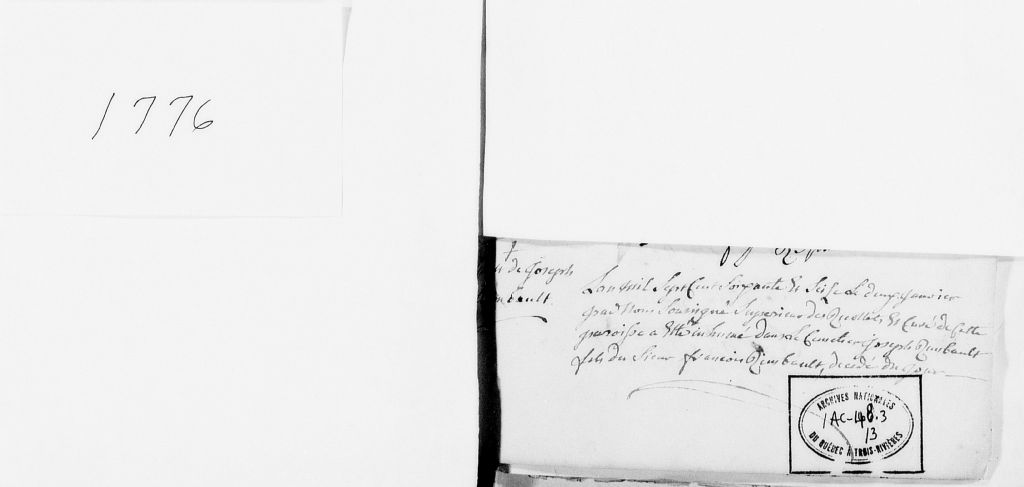 1776
de Joseph
Rimbault
L'an mil Sept Cent Soixante & Seise Le deux Janvier
par Nous Soussigné Superieur des Recollets & Curé de Cette
paroisse a Etté inhumé dans le Cimetiere Joseph Rimbault
fils du Sieur francois Rimbault, decedé du Jour
ARCHIVES NATIONALES
1AC-48.3
13
DU QUÉBEC À TROIS-RIVIÈRES